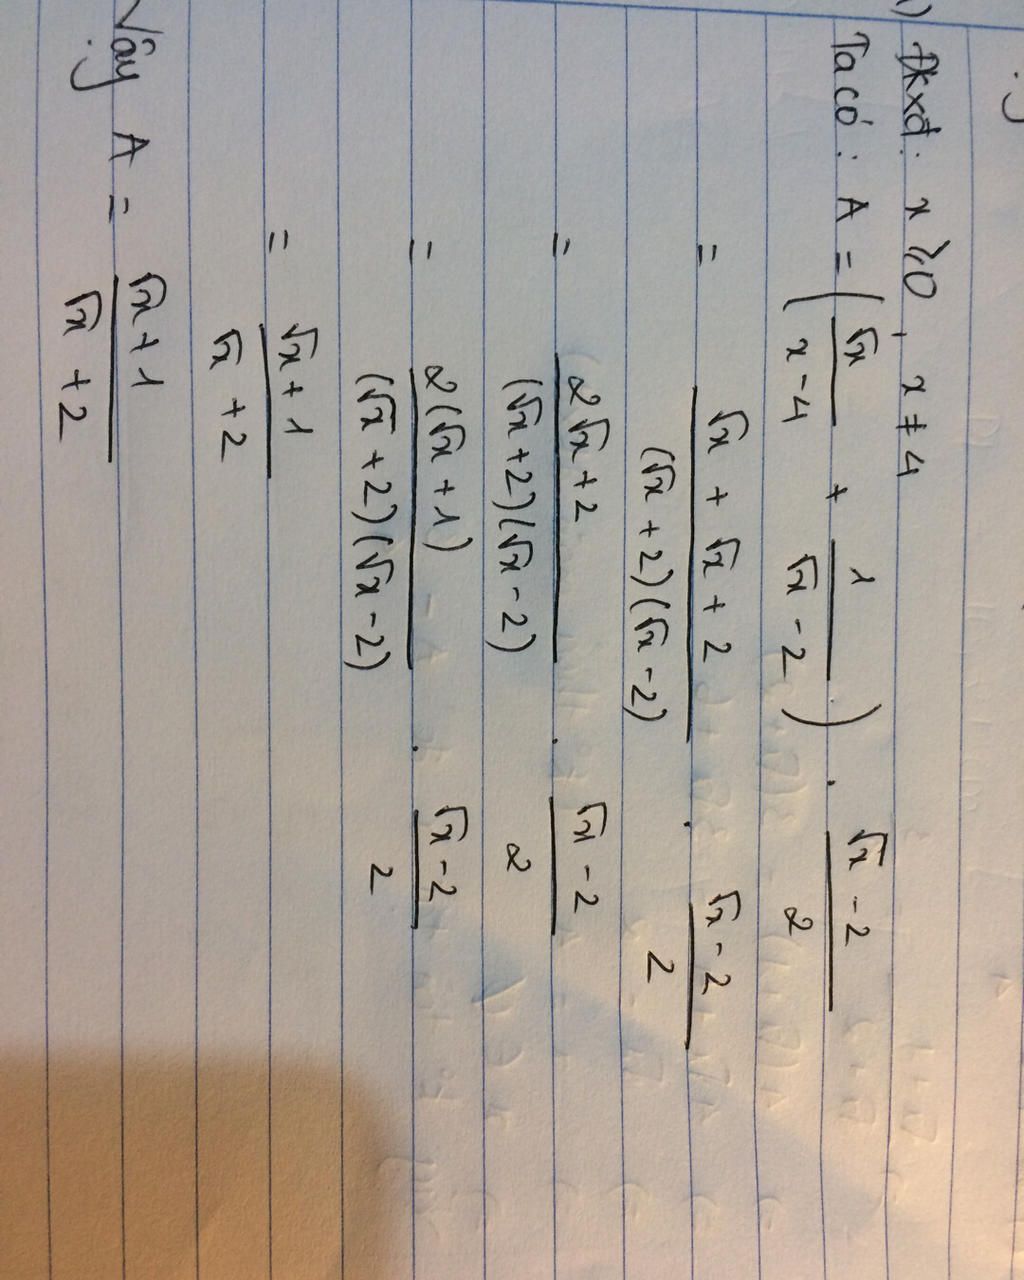 ĐKXĐ: x ⩾ 0, x ≠ 4
Ta có: A = (√x / (x - 4) + 1 / (√x - 2)) . (√x - 2) / 2
= (√x + √x + 2) / ((√x + 2)(√x - 2)) . (√x - 2) / 2
= (2√x + 2) / ((√x + 2)(√x - 2)) . (√x - 2) / 2
= 2(√x + 1) / ((√x + 2)(√x - 2)) . (√x - 2) / 2
= (√x + 1) / (√x + 2)
Vậy A = (√x + 1) / (√x + 2)